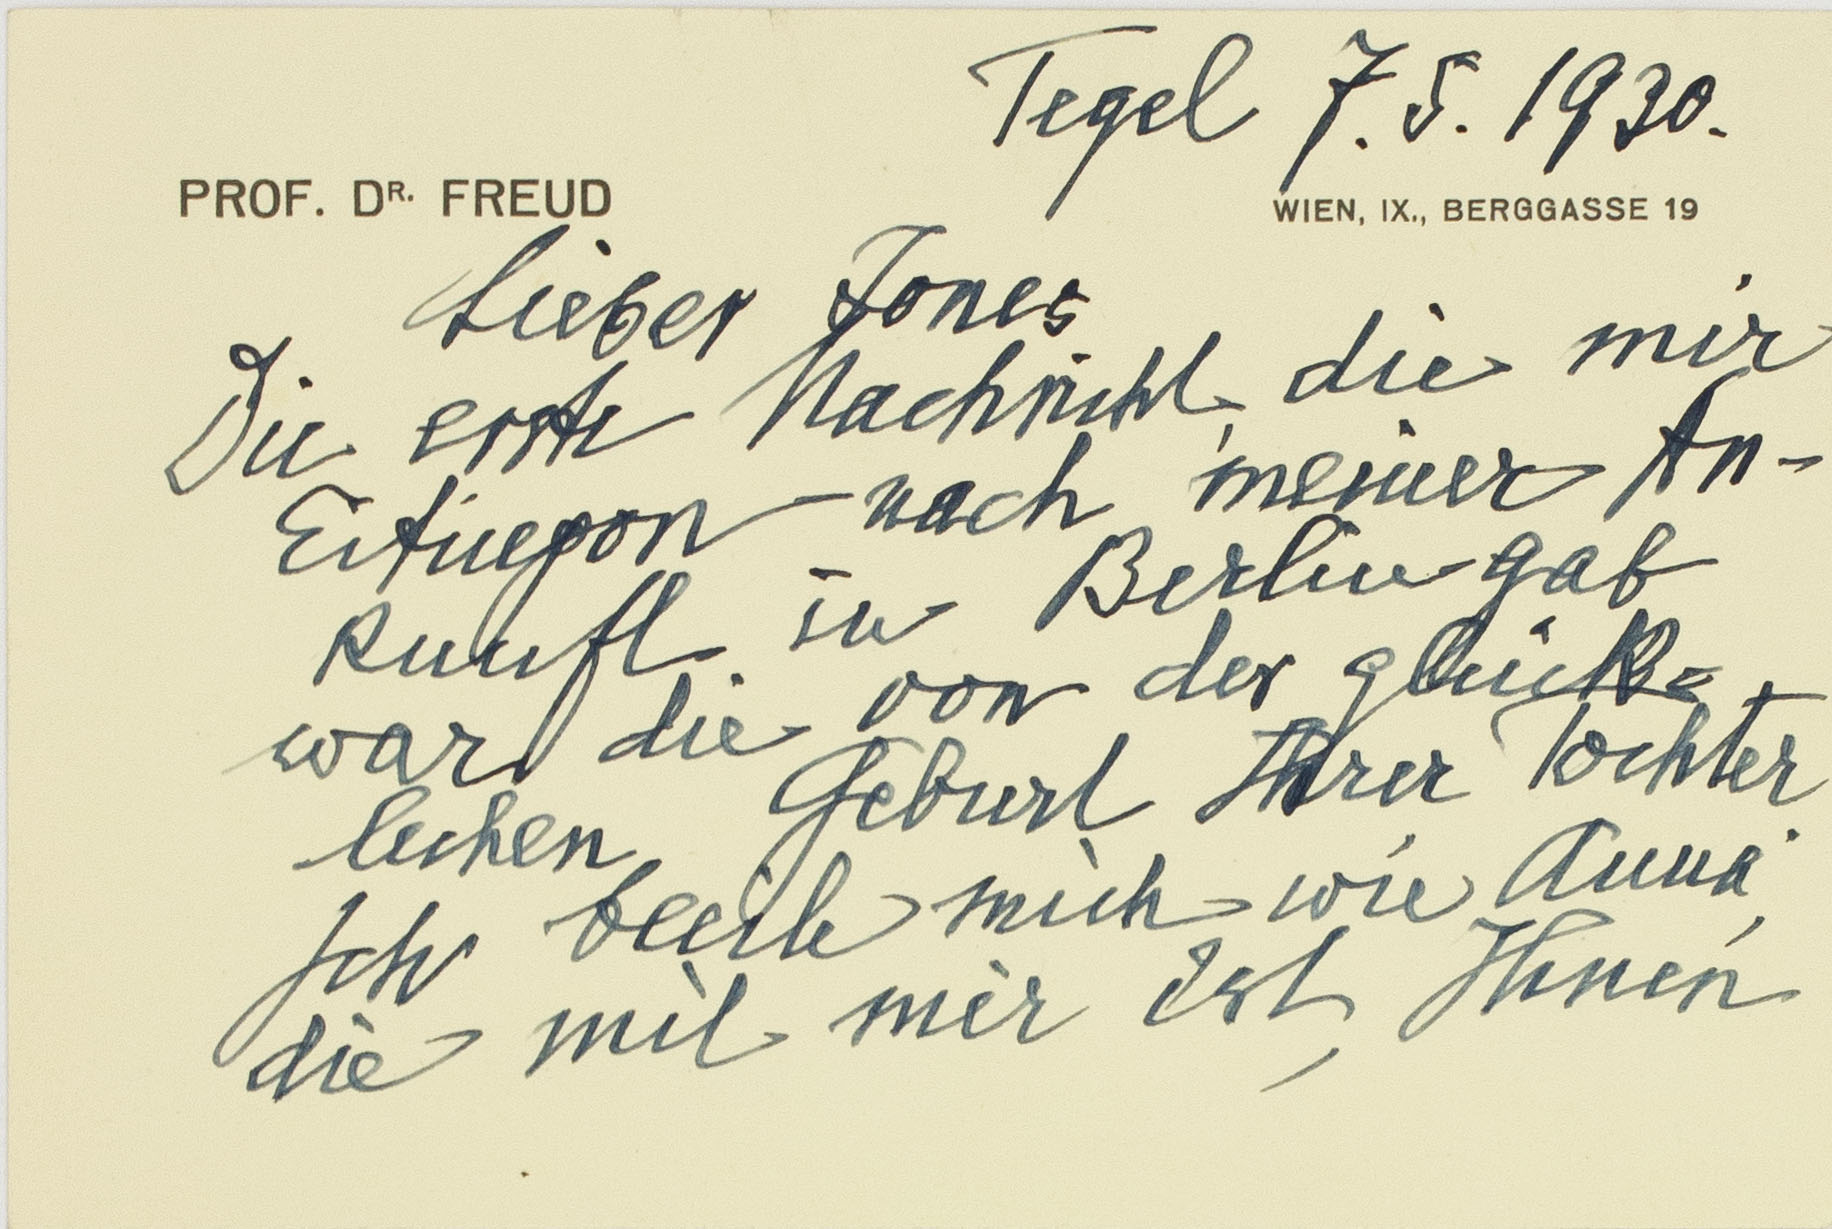 Tegel 7.5.1930.
PROF. DR. FREUD WIEN, IX., BERGGASSE 19
Lieber Jones
Die erste Nachricht, die mir
Eitingon nach meiner An-
kunft in Berlin gab
war die von der glück-
lichen Geburt Ihrer Tochter
Ich beeile mich wie Anna,
die mit mir ist, Ihnen